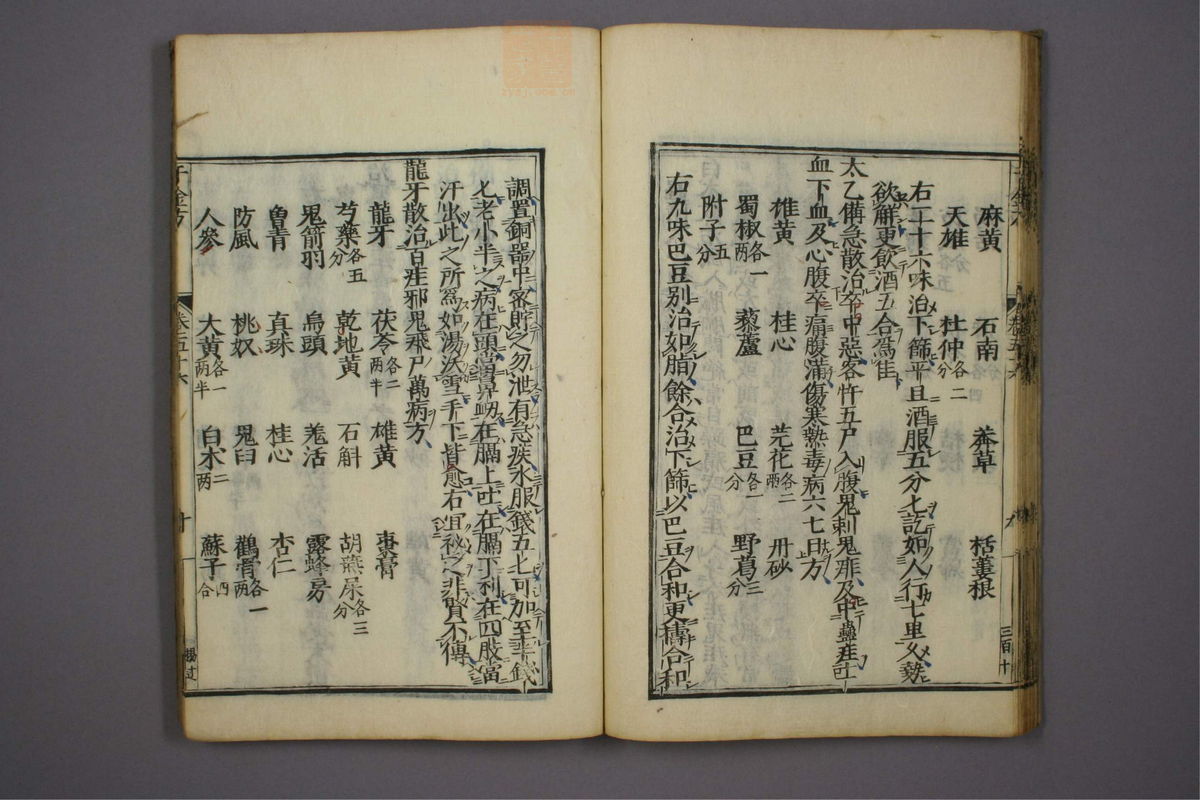 麻黄 石南 莽草 栝蔞根
天雄 杜仲各二分
右二十六味治下篩平旦酒服五分匕訖如人行七里久勢
欲解更飲酒五合爲佳
太乙備急散治卒中惡客忤五尸入腹鬼刺鬼痱及中蠱疰吐
血下血及心腹卒痛腹滿傷寒熱毒病六七日方
雄黄 桂心 芫花各二兩 丹砂
蜀椒各一兩 藜蘆 巴豆各一分 野葛三分
附子五分
右九味巴豆別治如脂餘合治下篩以巴豆合和更擣合和
三百十
調置銅器中密貯之勿泄有急疾水服錢五匕可加至半錢
匕老小半之病在頭當鼻衂在膈上吐在膈下利在四肢當
汗出此之所爲如湯沃雪手下皆愈右宜祕之非賢不傳
龍牙散治百疰邪鬼飛尸萬病方
龍牙 茯苓各二兩半 雄黄 棗膏
芍藥各五分 乾地黄 石斛 胡燕屎各三分
鬼箭羽 烏頭 羗活 露蜂房
曽青 真珠 桂心 杏仁
防風 桃奴 鬼臼 鸛骨各一兩
人參 大黄各一兩半 白术二兩 蘇子四合
千金方 卷五十六 十